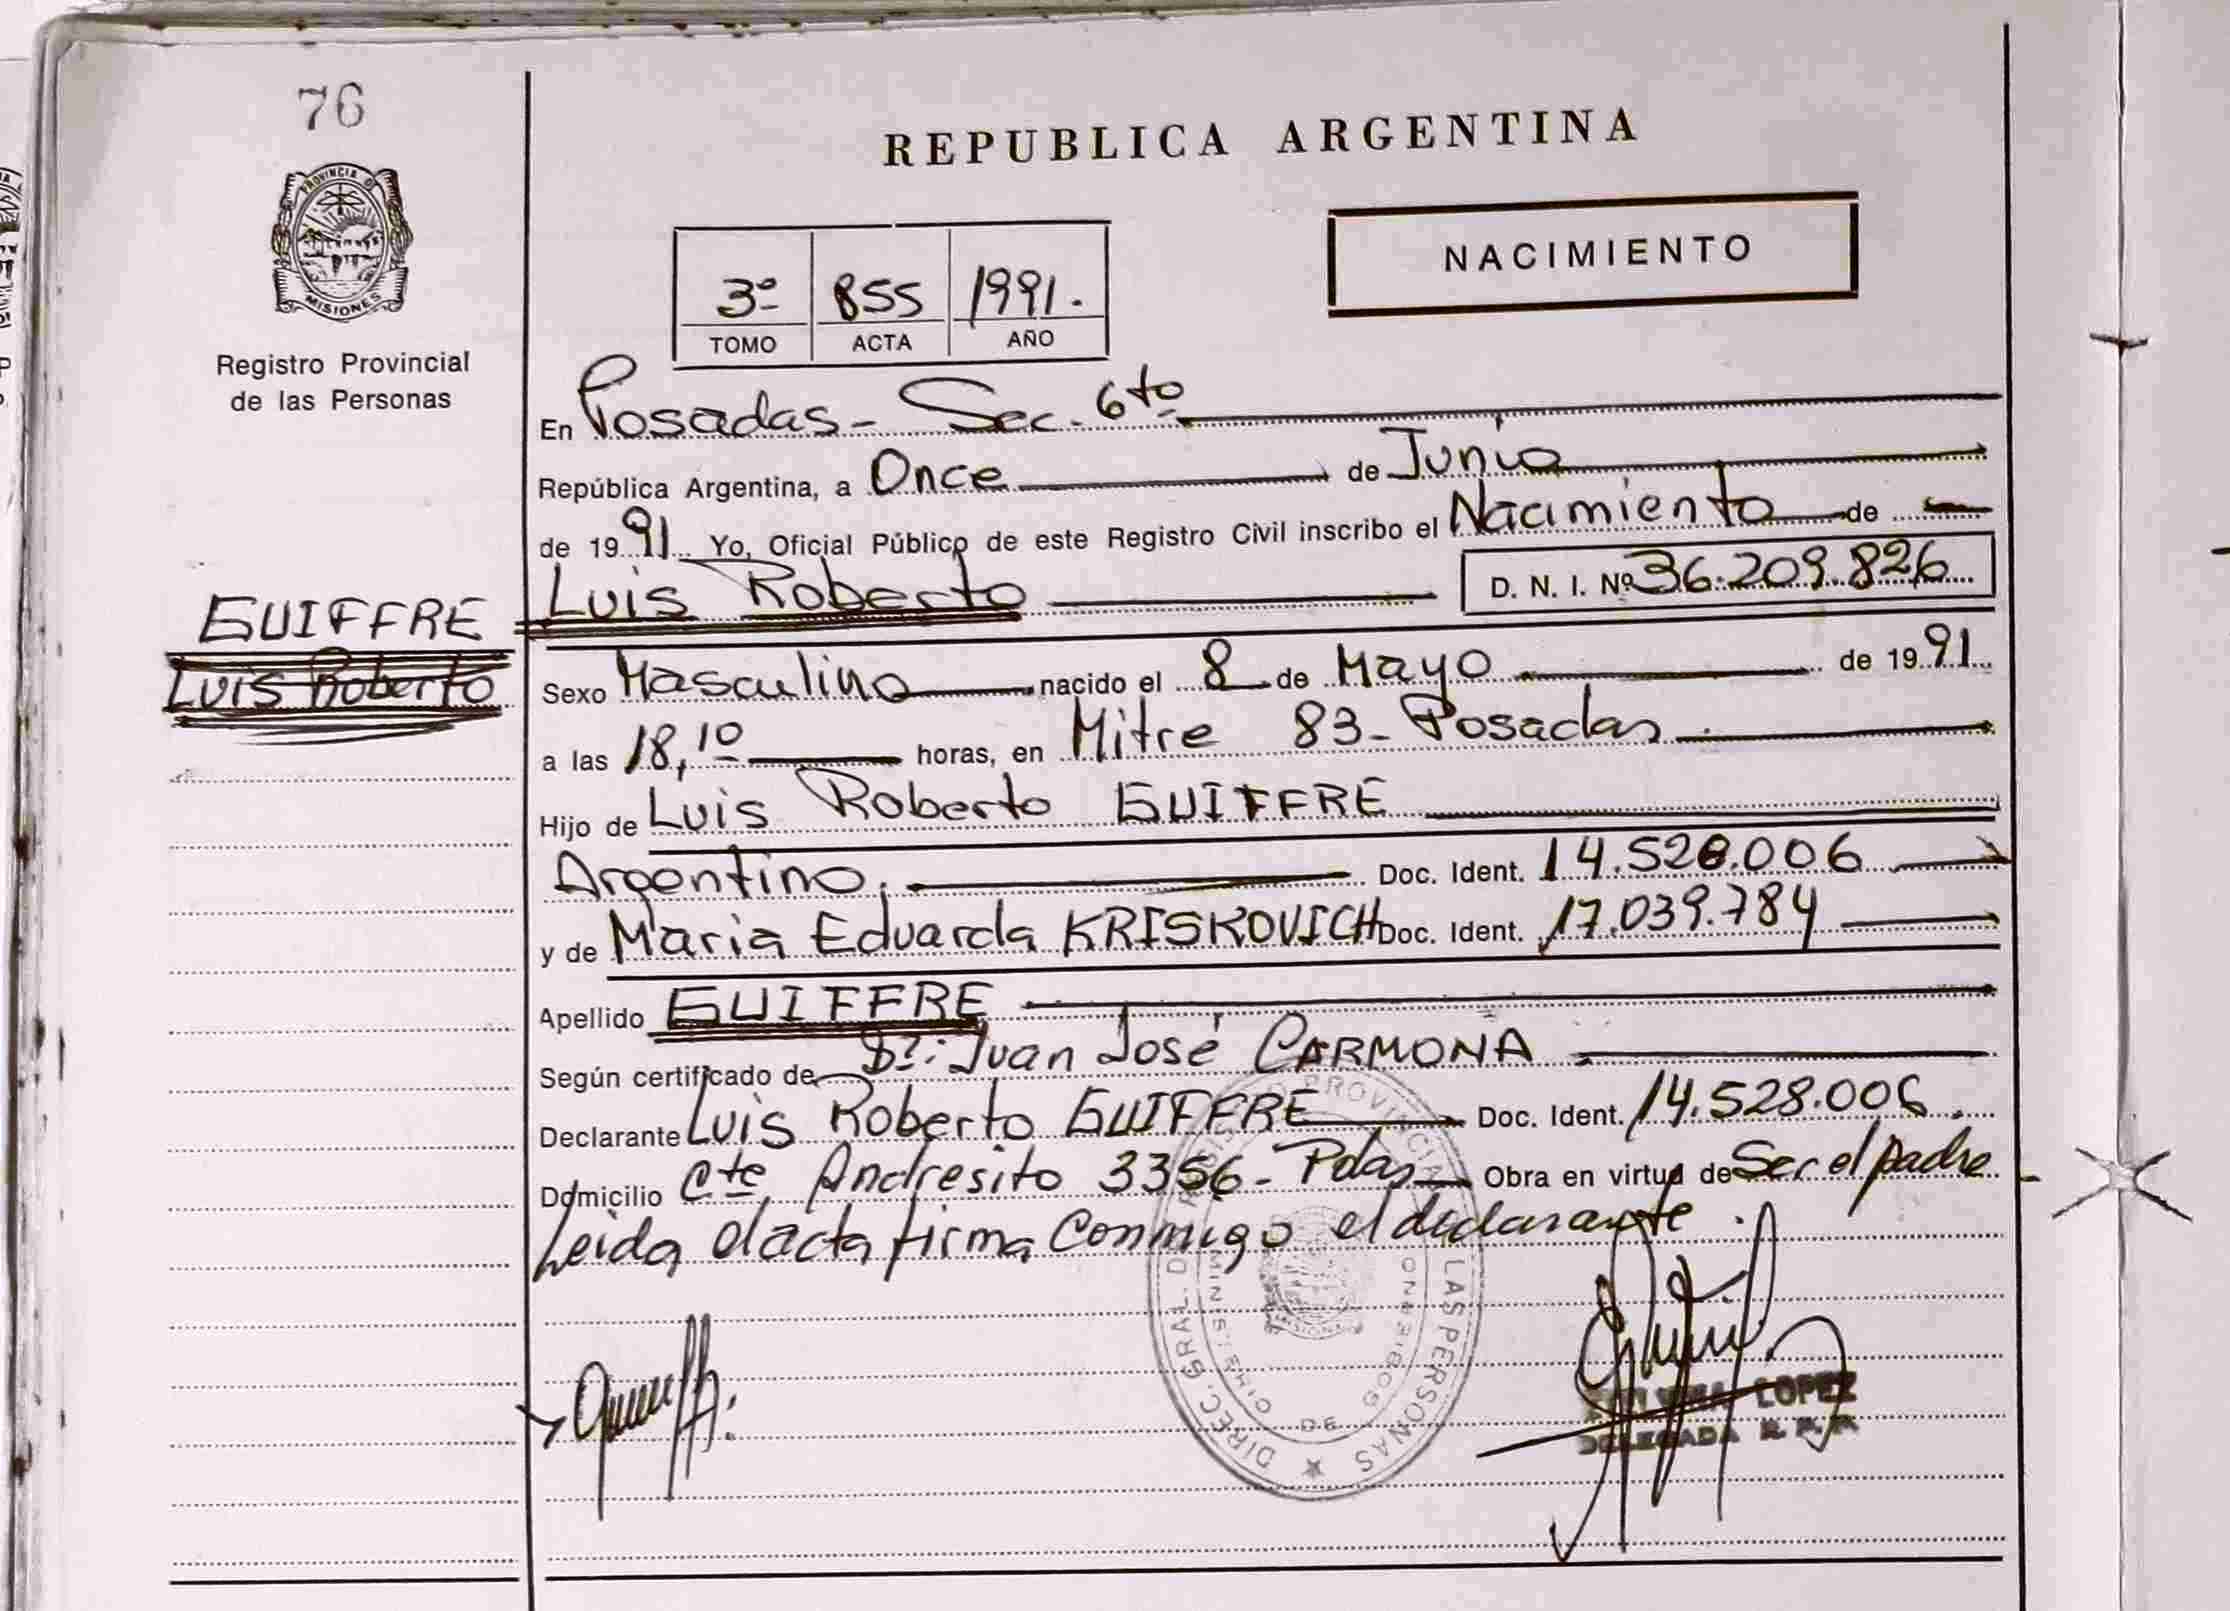 76
PROVINCIA D
MISIONES
Registro Provincial
de las Personas
GUIFFRE
Luis Roberto
REPUBLICA ARGENTINA
NACIMIENTO
3º 855 1991.
TOMO ACTA AÑO
En Posadas - Sec. 6to
República Argentina, a Once de Junio
de 1991 Yo, Oficial Público de este Registro Civil inscribo el Nacimiento de
Luis Roberto D. N. I. Nº 36.209.826
Sexo Masculino nacido el 8 de Mayo de 1991
a las 18,10 horas, en Mitre 83 - Posadas
Hijo de Luis Roberto GUIFFRE
Argentino. Doc. Ident. 14.528.006
y de Maria Eduarda KRISKOVICH Doc. Ident. 17.039.784
Apellido GUIFFRE
Según certificado de Dr: Juan José CARMONA
Declarante Luis Roberto GUIFFRE Doc. Ident. 14.528.006.
Domicilio Cte Andresito 3356 - Pdas Obra en virtud de Ser el padre
Leida el acta firma Conmigo el declarante.
DIREC. GRAL. DE REGISTRO PROVINCIAL LAS PERSONAS
DE GOBIERNO
LOPEZ
DELEGADA R. P. P.